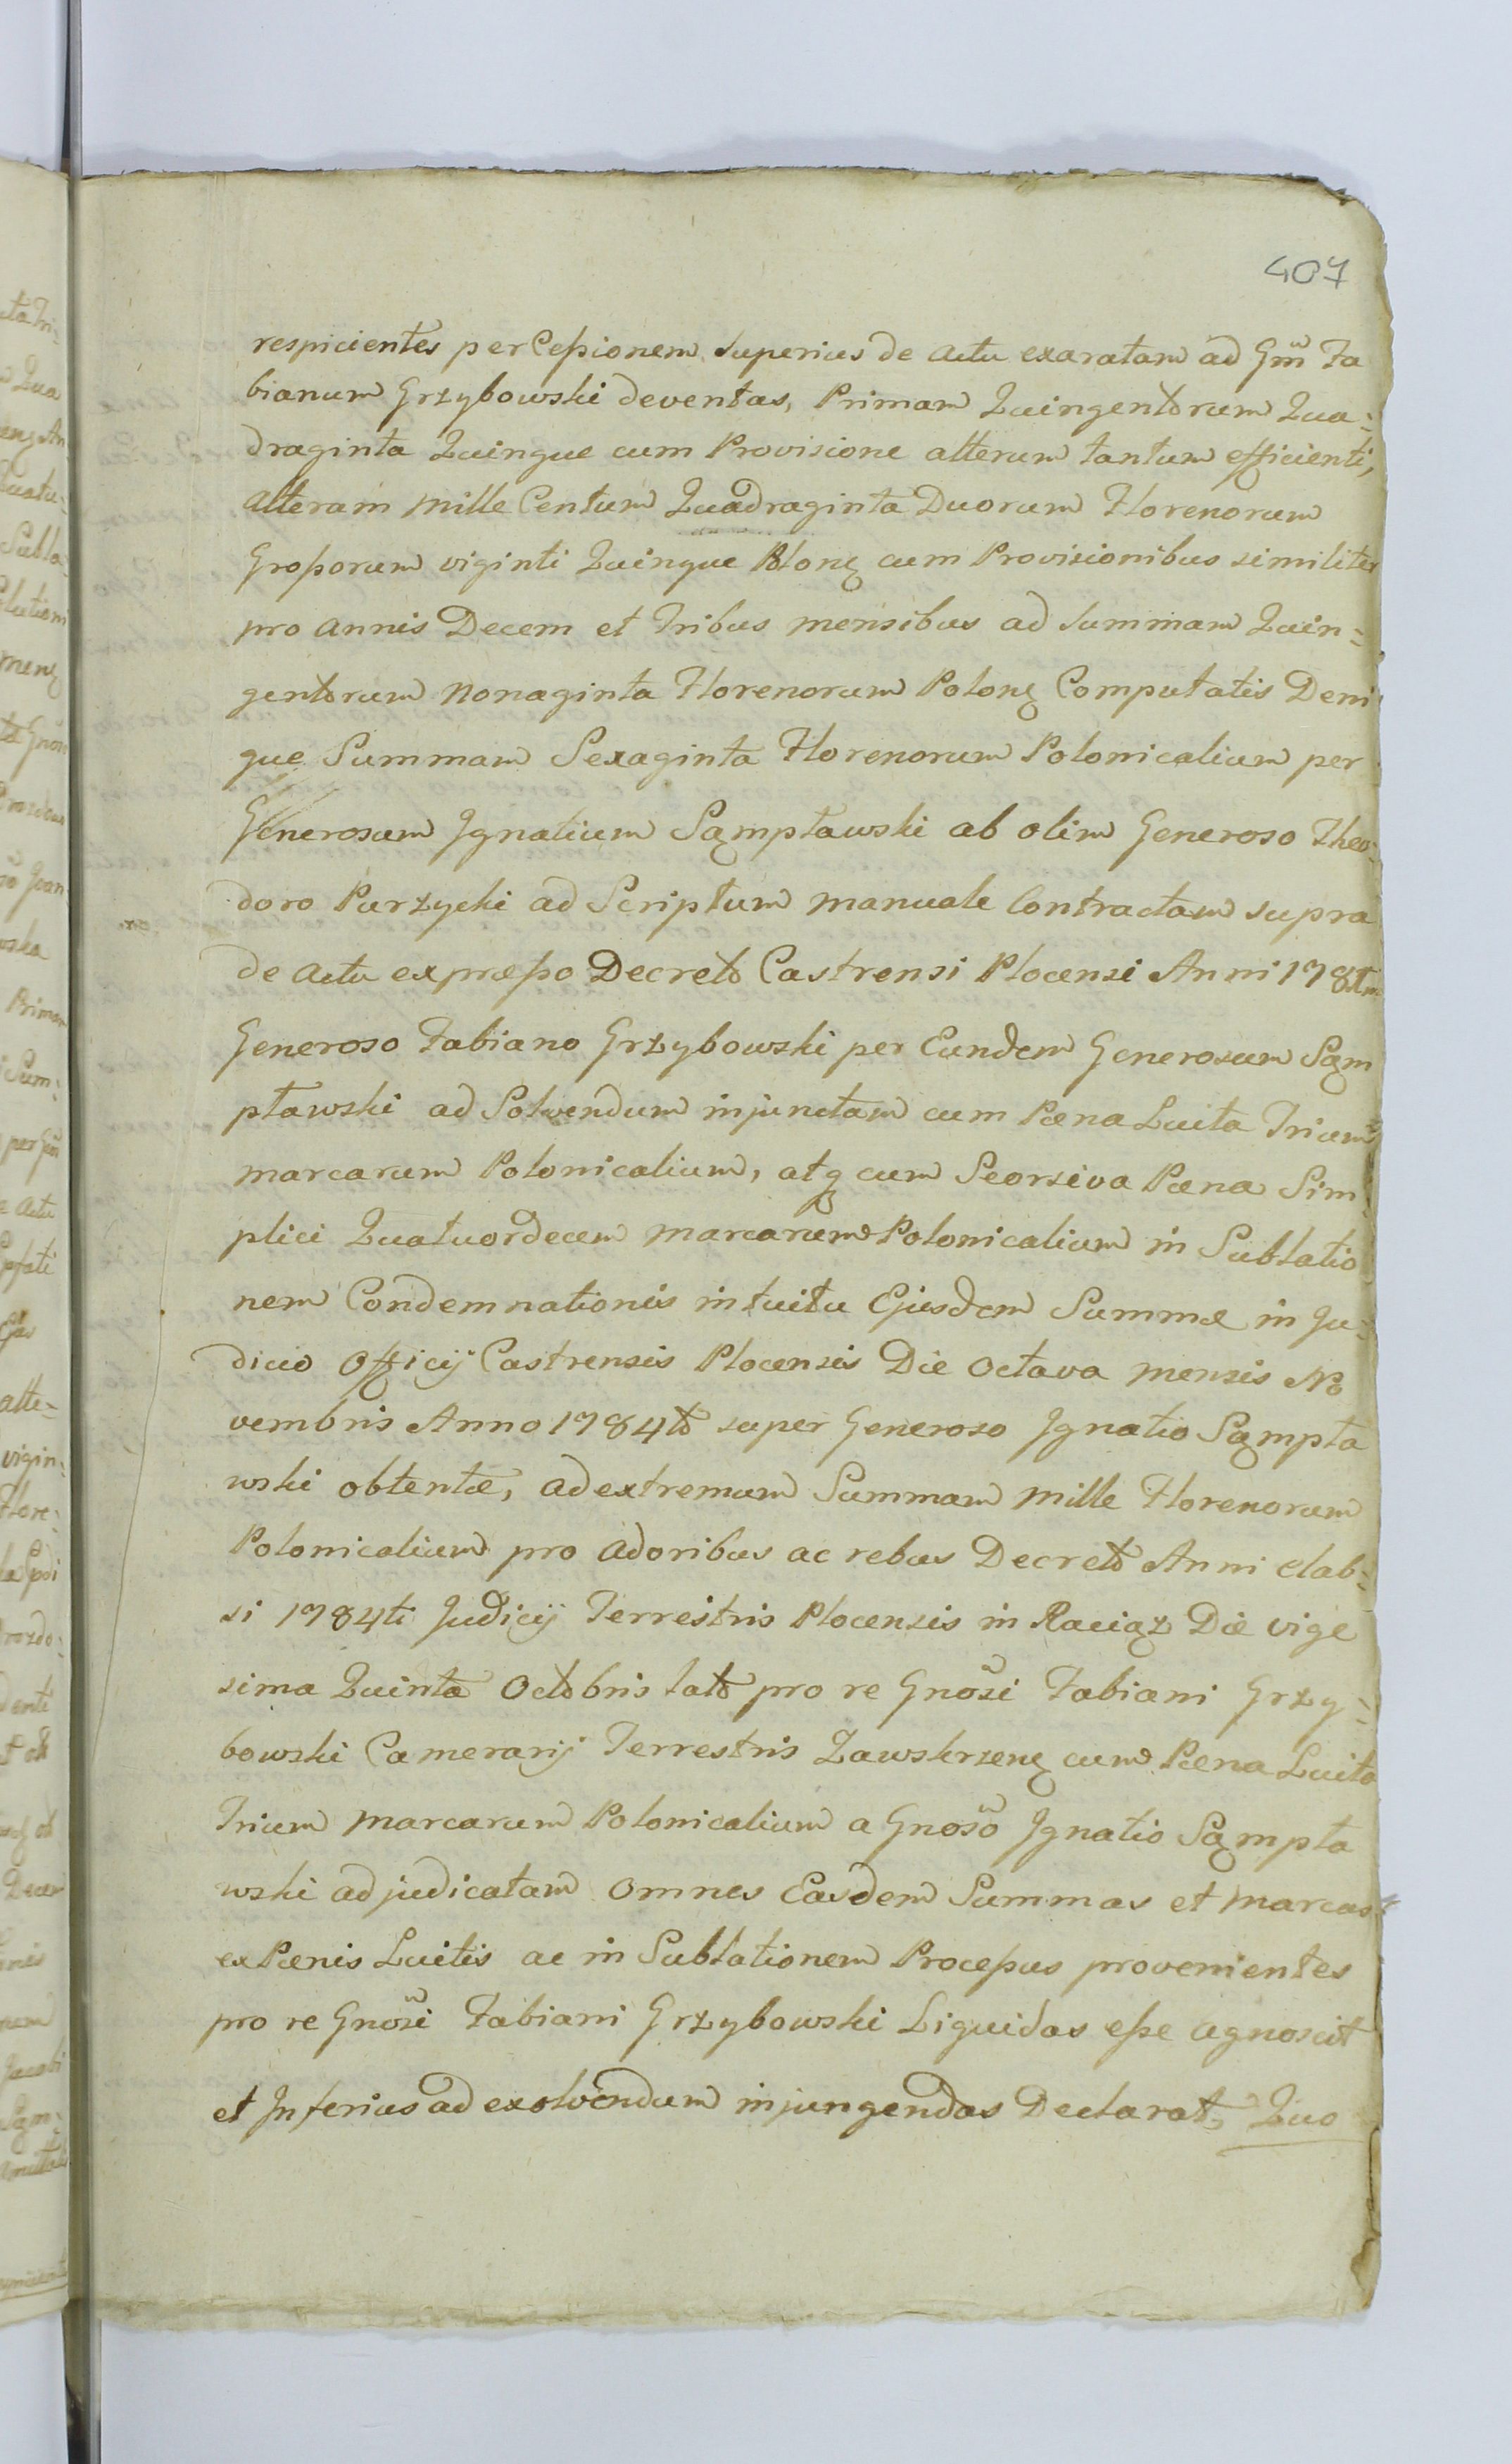 407
respicientes per Cessionem superius de actu exaratam ad Gnm̃ Fa
bianum Grzybowski deventas, Primam Quingentorum Qua=
draginta Quinque cum Provisione alterum tantum efficienti,
alteram mille Centum Quadraginta Duorum Florenorum
Grossorum viginti Quinque Polonę cum Provisionibus similiter
pro annis Decem et Tribus mensibus ad Summam Quin=
gentorum Nonaginta Florenorum Polonę Computatis Deni
que Summam Sexaginta Florenorum Polonicalium per
Generosum Ignatium Sąmpławski ab olim Generoso Theo=
doro Purzycki ad Scriptum manuale Contractam supra
de actu expresso Decreto Castrensi Plocensi Anni
Generoso Fabiano Grzybowski per Eundem Generosum Sąm
pławski ad Solvendum injunctam cum Pæna Luita Trium
marcarum Polonicalium, atq cum Seorsiva Pæna Sim
plici Quatuordecem marcarum Polonicalium in Sublatio
nem Condemnationis intuitu Ejusdem Summæ in Ju=
dicio Officij Castrensis Plocensis Die Octava mensis No
vembris Anno 1784to super Generoso Ignatio Sąmpła
wski obtentæ, ad extremum Summam mille Florenorum
Polonicalium pro adoribus ac rebus Decreto Anni elab=
si 1784ti Judicij Terrestris Plocensis in Raciąż Die vige
sima Quinta Octobris lato pro re Gnõsi Fabiani Grzy=
bowski Camerarij Terrestris Zawskrzenę cum Pæna Luita
Trium marcarum Polonicalium a Gnõso Ignatio Sąmpła
wski adjudicatam omnes Easdem Summas et marcas
ex Pænis Luitis ac in Sublationem Processus provenientes
pro re Gnõsi Fabiani Grzybowski Liquidas esse agnoscit
et Inferius ad exolvendum injungendas Declarat, Quo